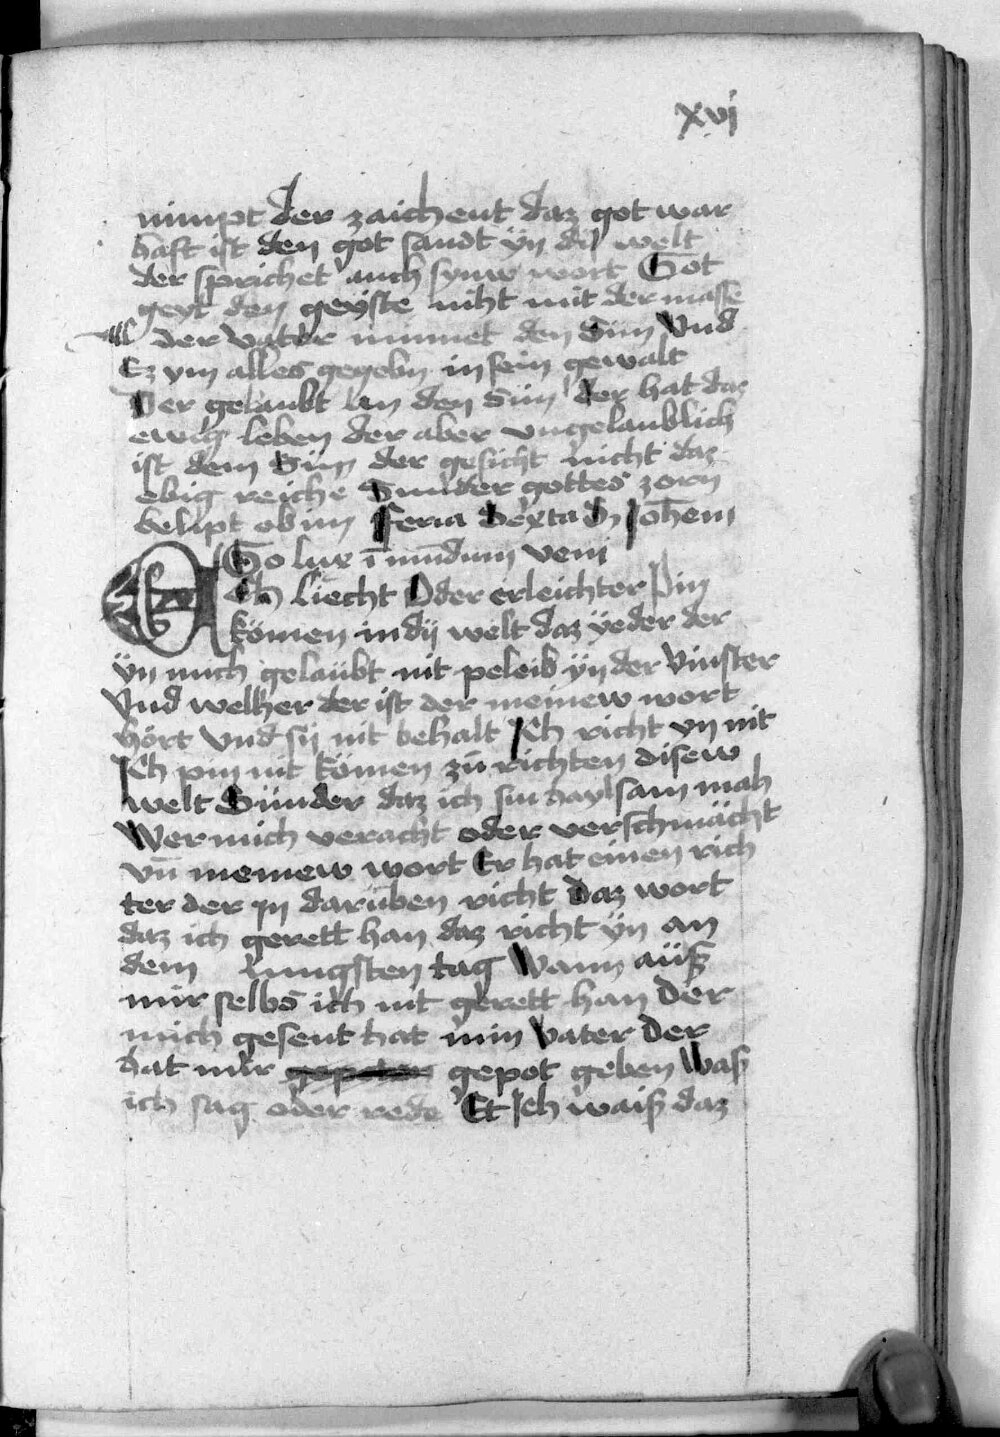 xvj
nimpt der zaichent daz got war
haft ist den got sandt ÿn dÿ welt
der sprichet auch synw wort Got
geyt den geÿste niht mit der masse
der vater minnet den Sun Vnd
Ez ym alles gegebn in sein gewalt
Der gelaubt an den Sun der hat daz
ewig leben der aber vngelaublich
ist dem Sun der gesicht nicht daz
ebig reiche Sunder gottes zorn
belipt ob im Feria Sexta Johem
Ego lux ī mūdum veni
Ich liecht Oder erleichter Pin
kömen in dij welt daz yeder der
ÿn mich gelaübt nit peleib ÿn der vinster
Vnd welher der ist der meinew wort
hört Vnd sij nit behalt Ich richt yn nit
Ich pin nit kömen zů richten disew
welt Sünder daz ich sin haylsam mah
Wer mich veracht oder verschmächt
vn̄ meinew wort Er hat einen rich
ter der jn darüben richt Daz wort
daz ich gerett han daz richt ÿn an
dem Jungsten tag Wann aüß
mir selbs ich nit gerett han Der
mich gesent hat min Vater der
hat mir gepot geben Waß
ich sag oder rede Et Ich waiß daz